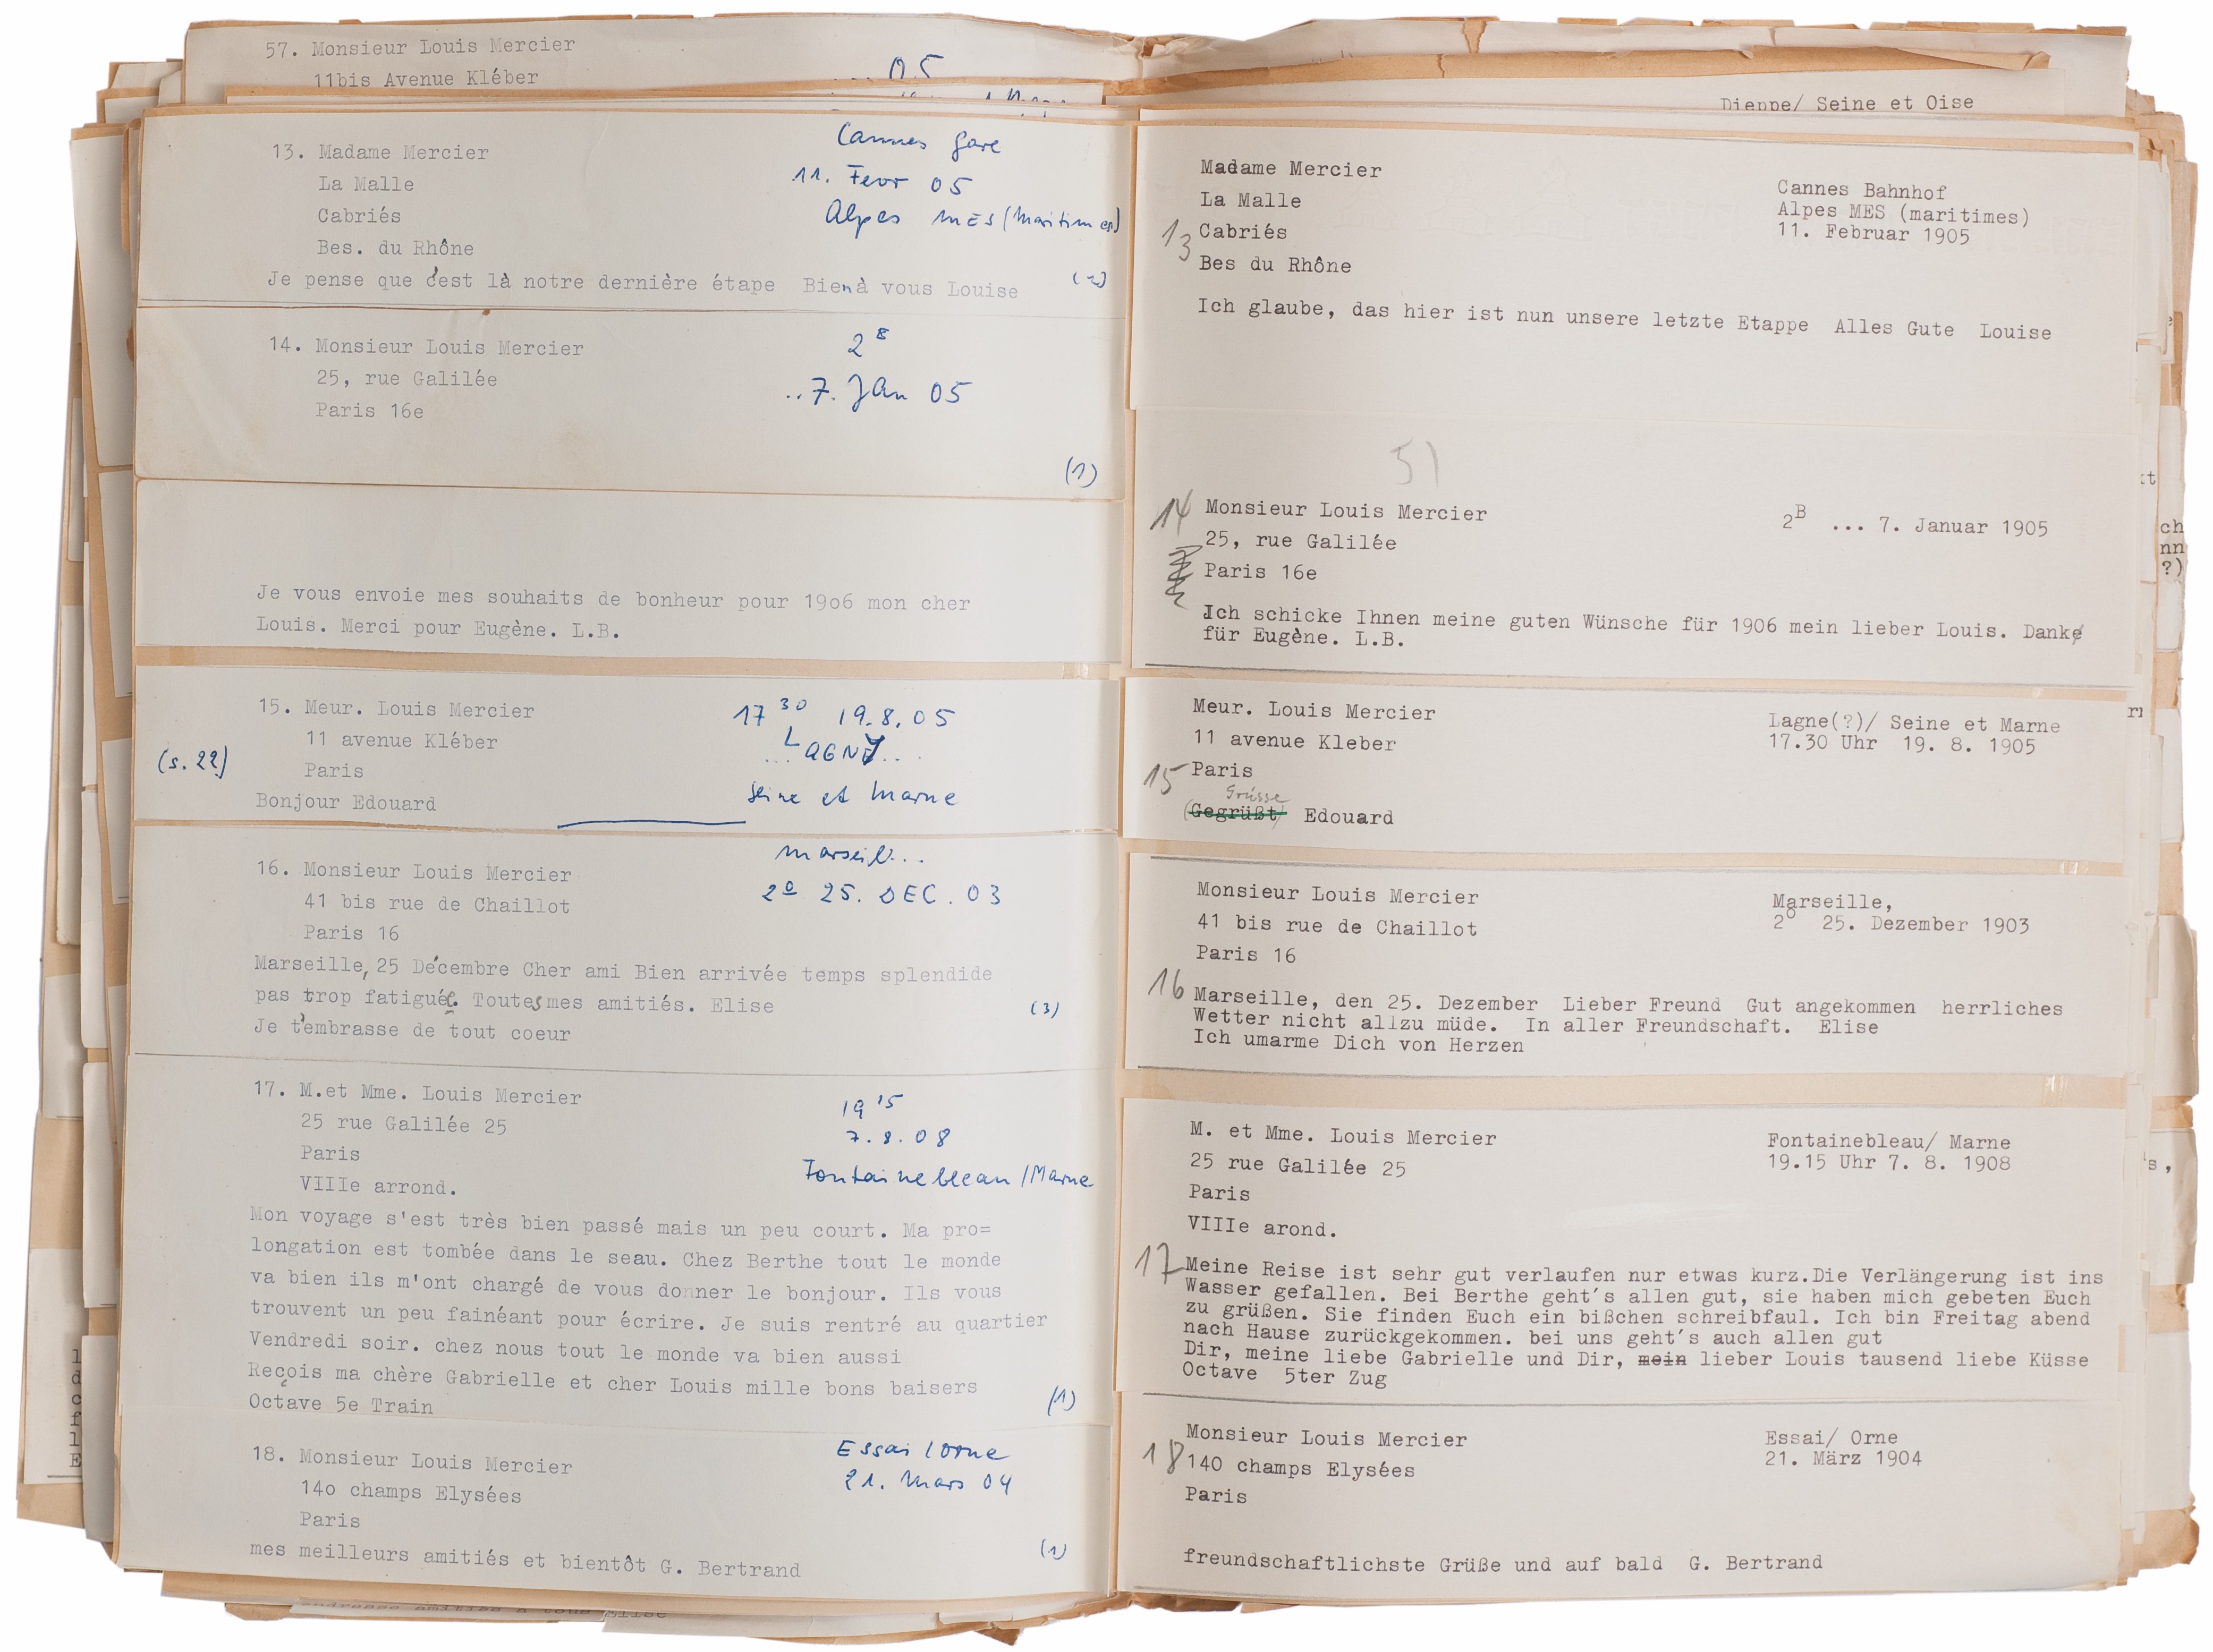 57. Monsieur Louis Mercier
11bis Avenue Kléber
05
13. Madame Mercier
La Malle
Cabriés
Bes. du Rhône
Cannes gare
11. Fevr 05
Alpes MES (Maritimes)
Je pense que c'est là notre dernière étape Bien à vous Louise
14. Monsieur Louis Mercier
25, rue Galilée
Paris 16e
2 8
..7. Jan 05
(1)
Je vous envoie mes souhaits de bonheur pour 19o6 mon cher
Louis. Merci pour Eugène. L.B.
15. Meur. Louis Mercier
11 avenue Kléber
Paris
17 30 19.8.05
...LAGNY...
Seine et Marne
(s. 22)
Bonjour Edouard
16. Monsieur Louis Mercier
41 bis rue de Chaillot
Paris 16
Marseil...
2e 25. DEC. 03
Marseille, 25 Décembre Cher ami Bien arrivée temps splendide
pas trop fatiguée. Toutes mes amitiés. Elise
(3)
Je t'embrasse de tout coeur
17. M.et Mme. Louis Mercier
25 rue Galilée 25
Paris
VIIIe arrond.
19 15
7.8.08
Fontainebleau/Marne
Mon voyage s'est très bien passé mais un peu court. Ma pro=
longation est tombée dans le seau. Chez Berthe tout le monde
va bien ils m'ont chargé de vous donner le bonjour. Ils vous
trouvent un peu fainéant pour écrire. Je suis rentré au quartier
Vendredi soir. chez nous tout le monde va bien aussi
Reçois ma chère Gabrielle et cher Louis mille bons baisers
Octave 5e Train
(1)
18. Monsieur Louis Mercier
14o champs Elysées
Paris
Essai/Orne
21. Mars 04
(1)
mes meilleurs amitiés et bientôt G. Bertrand
Dieppe/ Seine et Oise
Madame Mercier
La Malle
13 Cabriés
Bes du Rhône
Cannes Bahnhof
Alpes MES (maritimes)
11. Februar 1905
Ich glaube, das hier ist nun unsere letzte Etappe Alles Gute Louise
51
14 Monsieur Louis Mercier
25, rue Galilée
Paris 16e
2B ... 7. Januar 1905
Ich schicke Ihnen meine guten Wünsche für 1906 mein lieber Louis. Danke
für Eugène. L.B.
Meur. Louis Mercier
11 avenue Kleber
15 Paris
Lagne(?)/ Seine et Marne
17.30 Uhr 19. 8. 1905
Grüsse
(Gegrüßt) Edouard
Monsieur Louis Mercier
41 bis rue de Chaillot
Paris 16
Marseille,
2o 25. Dezember 1903
16 Marseille, den 25. Dezember Lieber Freund Gut angekommen herrliches
Wetter nicht allzu müde. In aller Freundschaft. Elise
Ich umarme Dich von Herzen
M. et Mme. Louis Mercier
25 rue Galilée 25
Paris
VIIIe arond.
Fontainebleau/ Marne
19.15 Uhr 7. 8. 1908
17 Meine Reise ist sehr gut verlaufen nur etwas kurz.Die Verlängerung ist ins
Wasser gefallen. Bei Berthe geht's allen gut, sie haben mich gebeten Euch
zu grüßen. Sie finden Euch ein bißchen schreibfaul. Ich bin Freitag abend
nach Hause zurückgekommen. bei uns geht's auch allen gut
Dir, meine liebe Gabrielle und Dir, mein lieber Louis tausend liebe Küsse
Octave 5ter Zug
Monsieur Louis Mercier
18 140 champs Elysées
Paris
Essai/ Orne
21. März 1904
freundschaftlichste Grüße und auf bald G. Bertrand